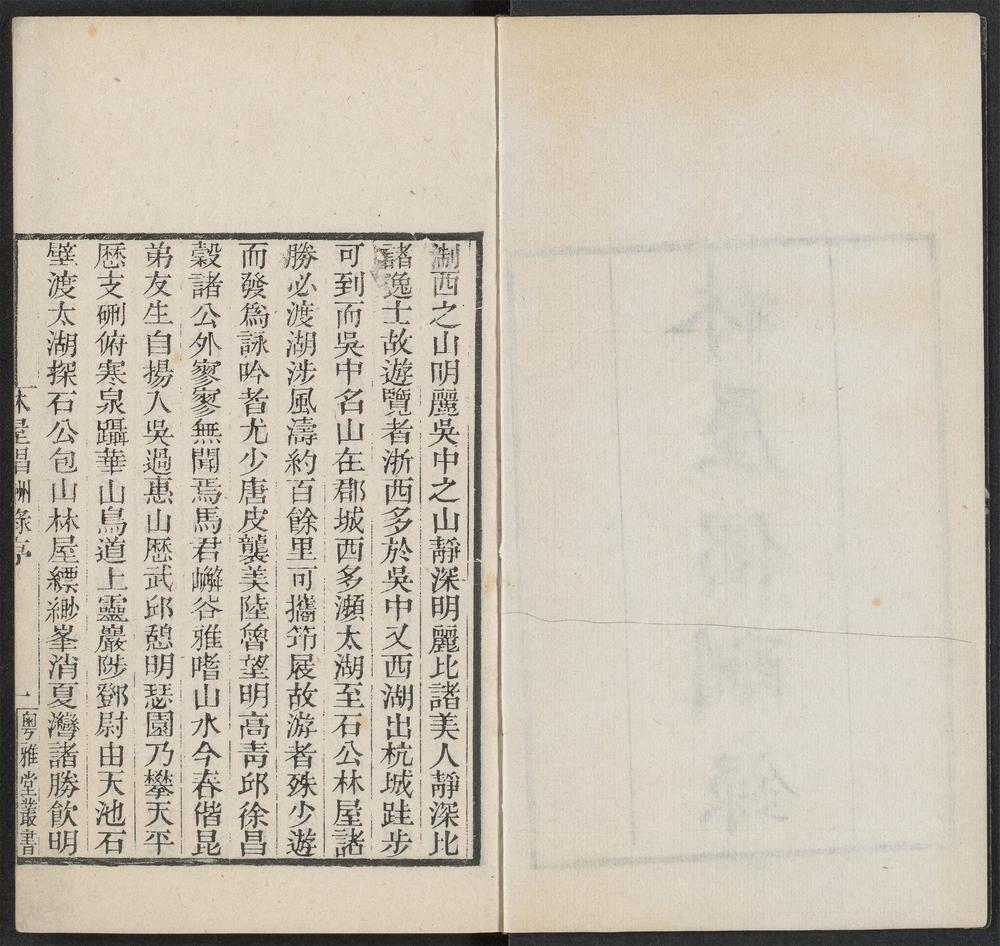 淛西之山明麗吳中之山靜深明麗比諸美人靜深比
諸逸士故遊覽者浙西多於吳中又西湖出杭城跬步
可到而吳中名山在郡城西多瀕太湖至石公林屋諸
勝必渡湖涉風濤約百餘里可攜笻屐故游者殊少遊
而發爲詠吟者尤少唐皮襲美陸魯望明高靑邱徐昌
穀諸公外寥寥無聞焉馬君嶰谷雅嗜山水今春偕昆
弟友生自揚入吳過惠山厯武邱憩明瑟園乃攀天平
厯支硎俯寒泉躡華山鳥道上靈巖陟鄧尉由天池石
壁渡太湖探石公包山林屋縹緲峯消夏灣諸勝飮明
林屋唱酬錄序
一
粵雅堂叢書
林屋唱酬錄